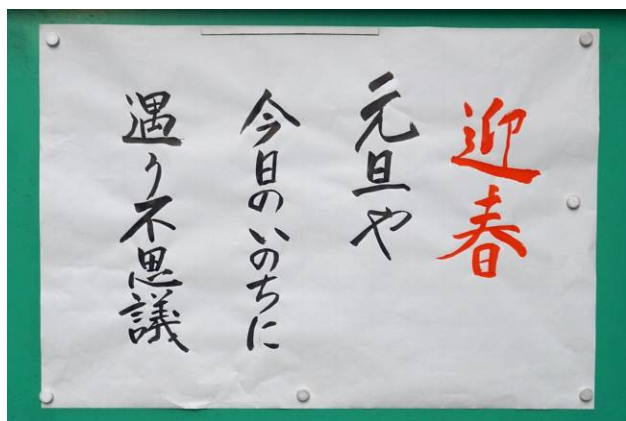 迎春
元旦や
今日のいのちに
遇う不思議